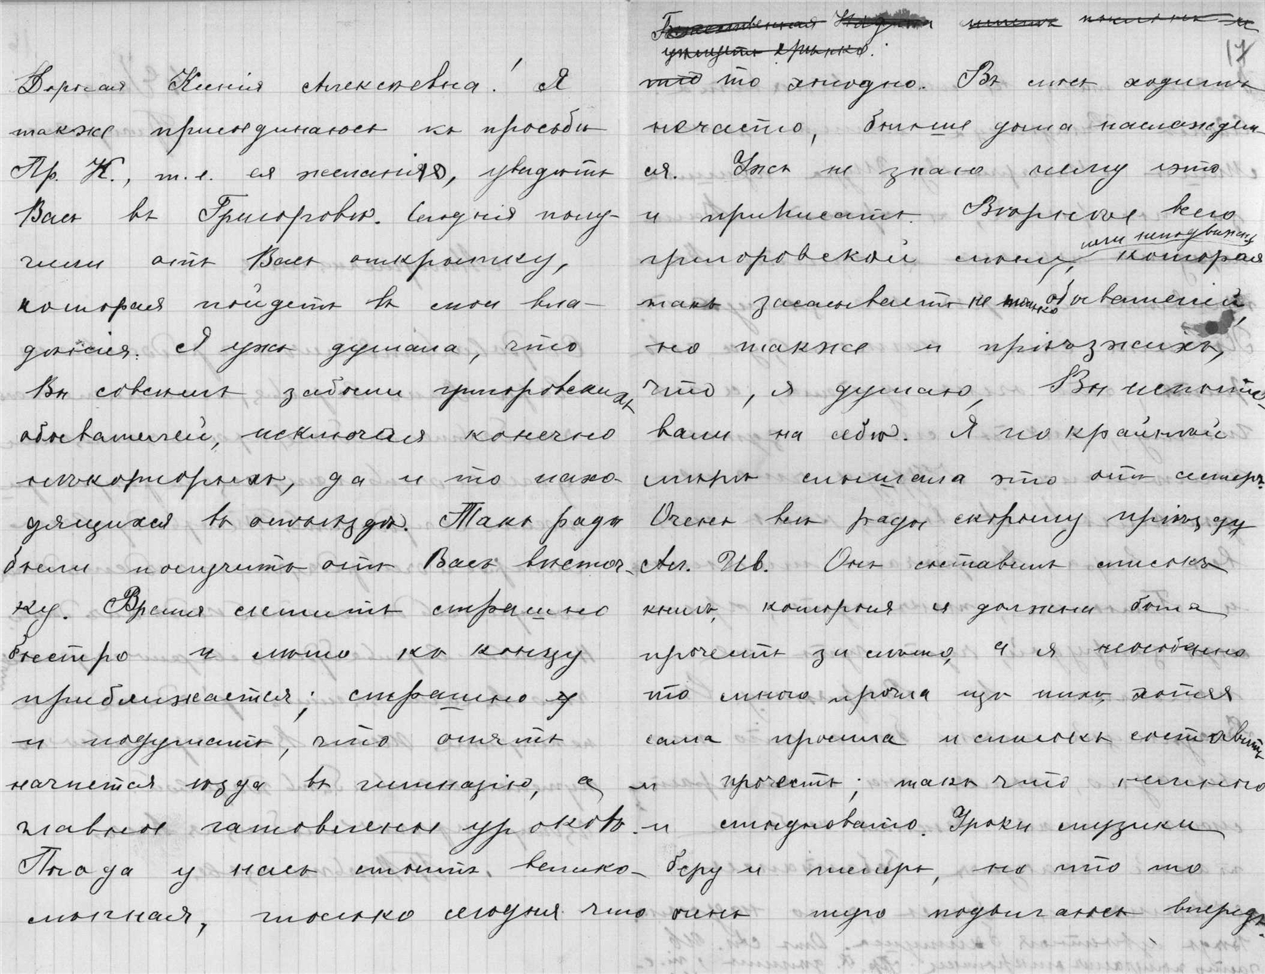 Дорогая Ксенія Алексѣевна! Я
также присоединяюсь къ просьбѣ
Пр. К., т. е. ея желанію, увидѣть
Васъ въ Григоровкѣ. Сегодня полу-
чили отъ Васъ открытку,
которая пойдетъ въ мои вла-
дѣнія. Я ужъ думала, что
Вы совсѣмъ забыли григоровскихъ
обывателей, исключая конечно
нѣкоторыхъ, да и то нахо-
дящихся въ отъѣздѣ. Такъ рады
были получить отъ Васъ вѣсточ-
ку. Время летитъ страшно
быстро и лѣто къ концу
приближается; страшно
и подумать, что опять
начнется ѣзда въ гимназію, а
главное готовленье уроковъ.
Погода у насъ стоитъ велико-
лѣпная, только сегодня что
17
то холодно. Въ лѣсъ ходимъ
нечасто, больше дома наслаждаем-
ся. Ужъ не знаю чему это
и приписать. Вѣрнѣе всего
григоровской лѣни, или неподвижн. которая
такъ засасываетъ не только обывателей,
но также и пріѣзжихъ,
что, я думаю, Вы испыты-
вали на себѣ. Я по крайней
мѣрѣ слышала это отъ сестеръ.
Очень всѣ рады скорому пріѣзду
Ал. Ив. Онъ составилъ списокъ
книгъ, которыя я должна была
прочесть за лѣто, а я неособенно
то много прочла изъ нихъ, хотя
сама просила и списокъ составить
и прочесть; такъ что немного
и стыдновато. Уроки музыки
беру и теперь, но что то
очень туго подвигаюсь впередъ.